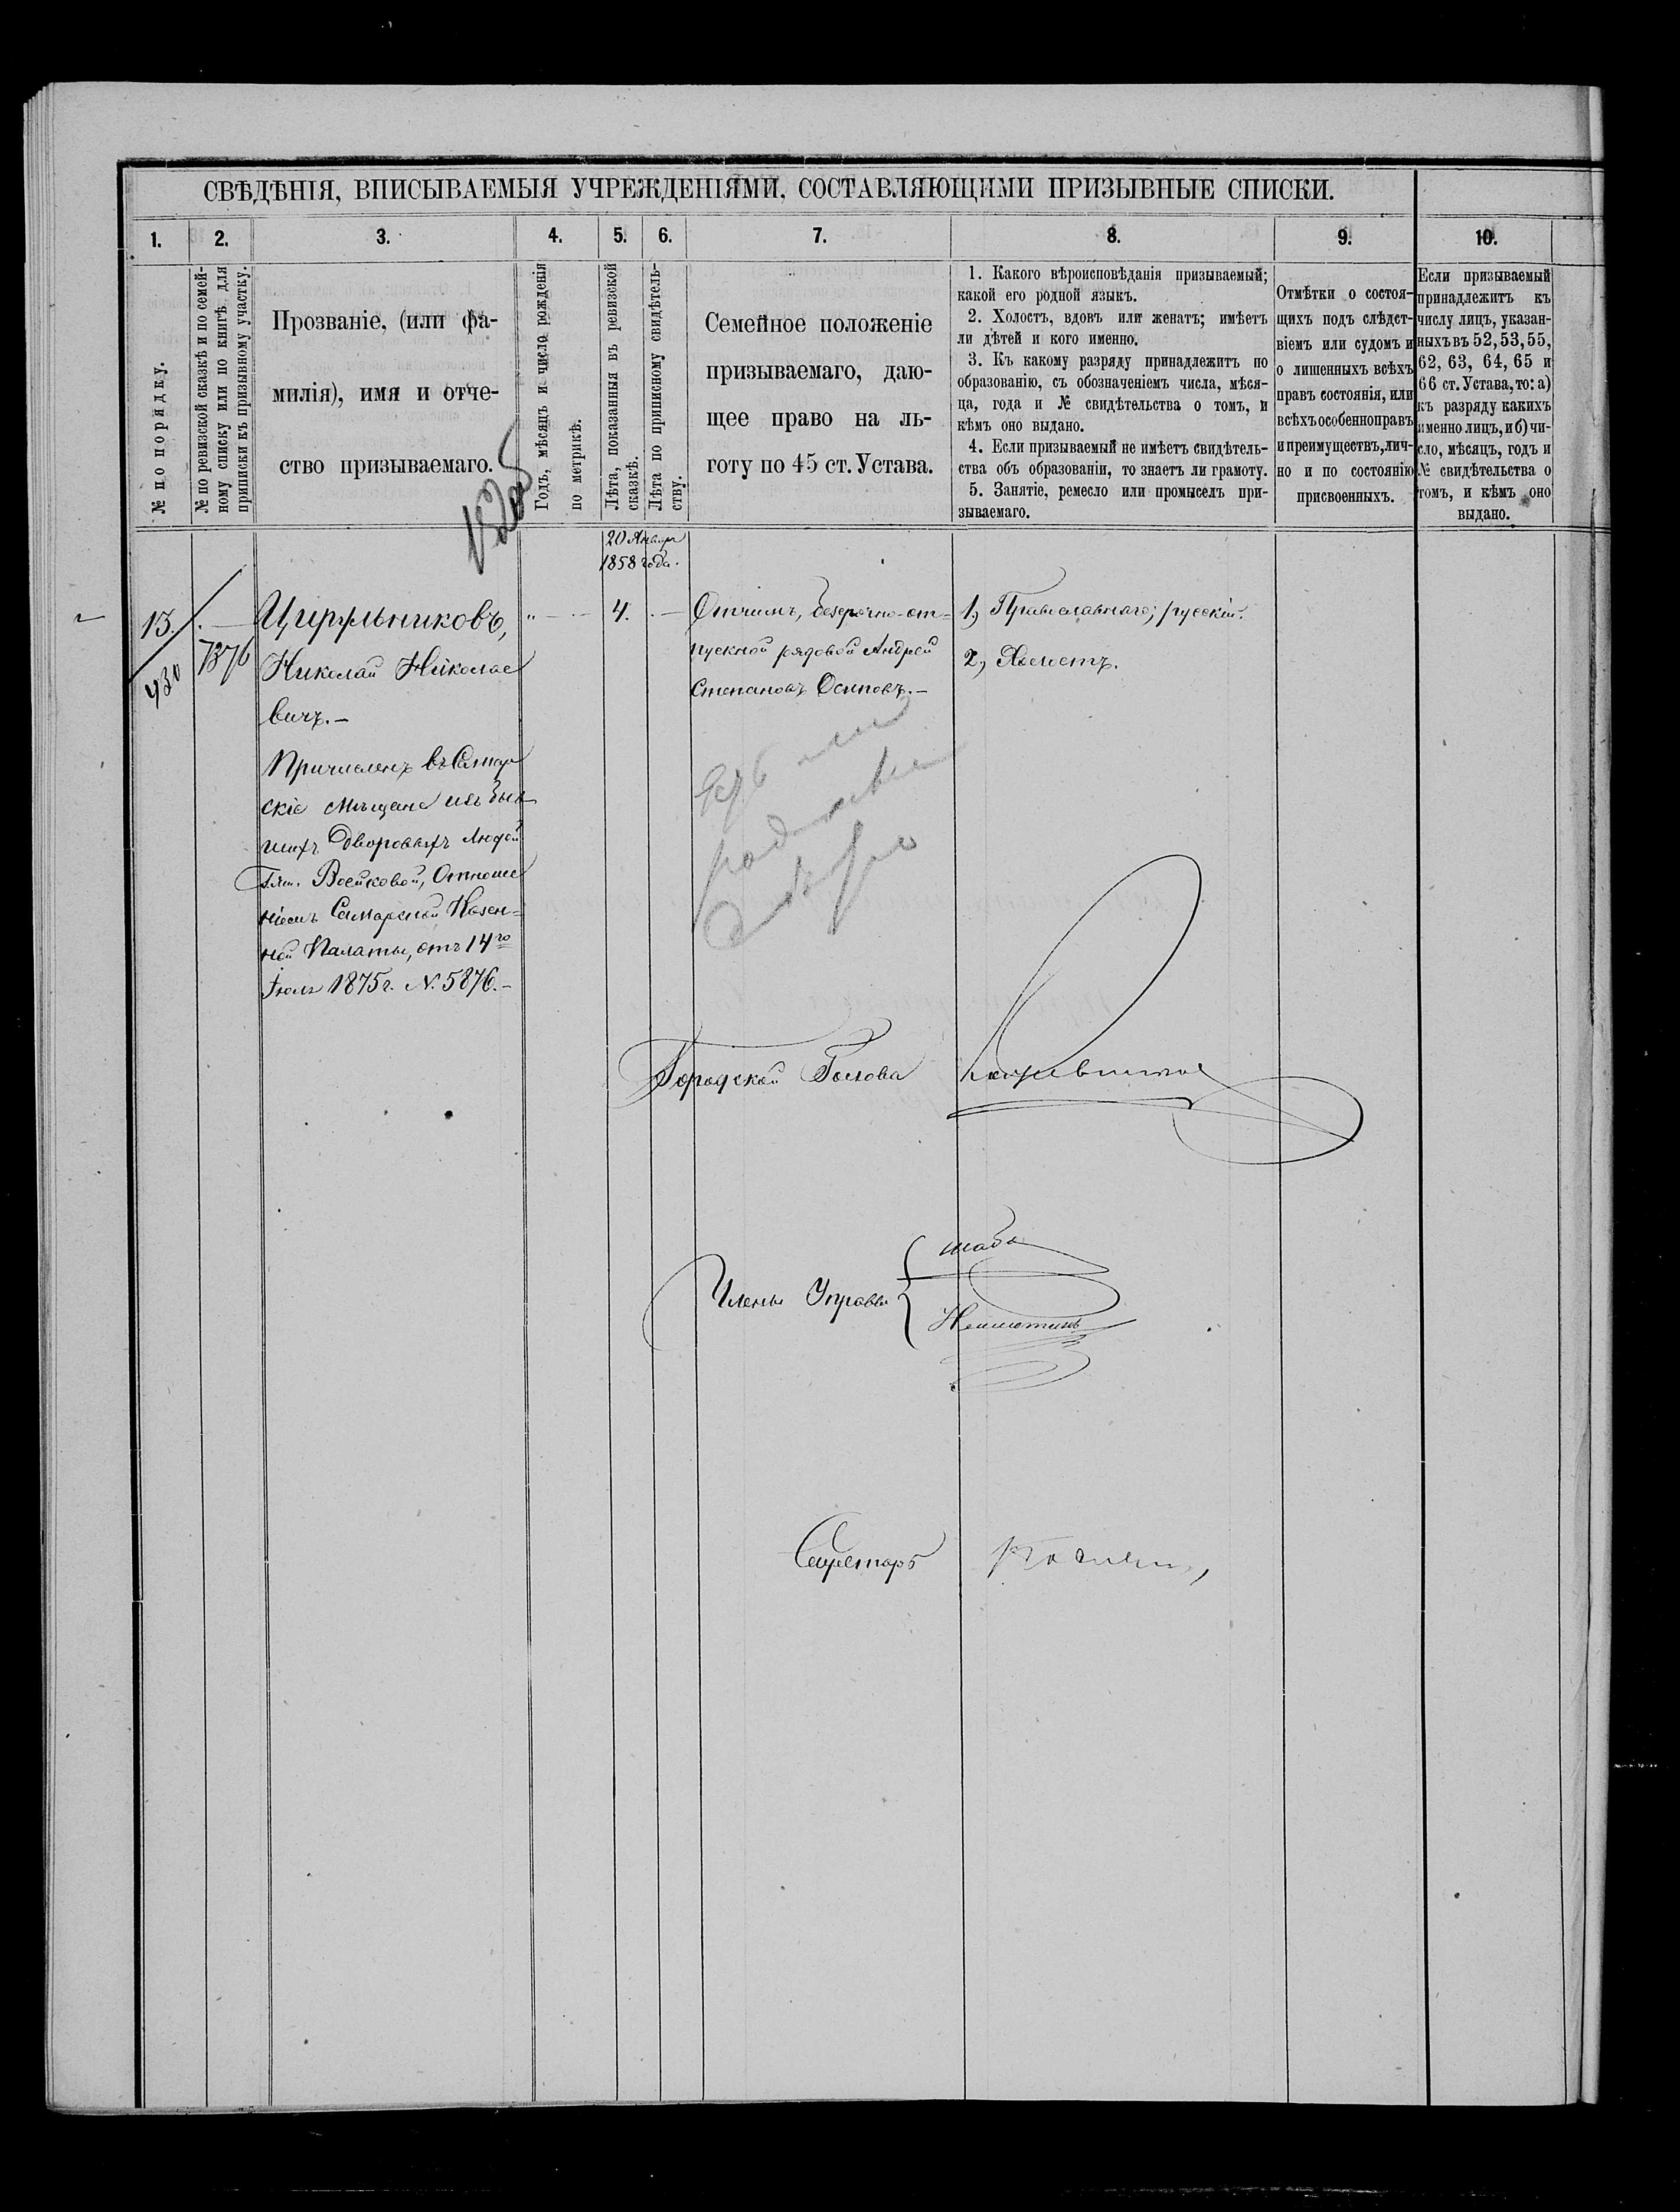 СВѢДѢНІЯ, ВПИСЫВАЕМЫЯ УЧРЕЖДЕНІЯМИ, СОСТАВЛЯЮЩИМИ ПРИЗЫВНЫЕ СПИСКИ.
1. 2. 3. 4. 5. 6. 7. 8. 9. 10.
№ по порядку.
№ по ревизской сказкѣ и по семей-
ному списку или по книгѣ для
приписки къ призывному участку.
Прозваніе, (или фа-
милія), имя и отче-
ство призываемаго.
Годъ, мѣсяцъ и число рожденія
по метрикѣ.
Лѣта, показанныя въ ревизской
сказкѣ.
Лѣта по приписному свидѣтель-
ству.
Семейное положеніе
призываемаго, даю-
щее право на ль-
готу по 45 ст. Устава.
1. Какого вѣроисповѣданія призываемый;
какой его родной языкъ.
2. Холостъ, вдовъ или женатъ; имѣетъ
ли дѣтей и кого именно.
3. Къ какому разряду принадлежитъ по
образованію, съ обозначеніемъ числа, мѣся-
ца, года и № свидѣтельства о томъ, и
кѣмъ оно выдано.
4. Если призываемый не имѣетъ свидѣтель-
ства объ образованіи, то знаетъ ли грамоту.
5. Занятіе, ремесло или промыселъ при-
зываемаго.
Отмѣтки о состоя-
щихъ подъ слѣдст-
віемъ или судомъ и
о лишенныхъ всѣхъ
правъ состоянія, или
всѣхъ особенно правъ
и преимуществъ, лич-
но и по состоянію
присвоенныхъ.
Если призываемый
принадлежитъ къ
числу лицъ, указан-
ныхъ въ 52, 53, 55,
62, 63, 64, 65 и
66 ст. Устава, то: а)
къ разряду какихъ
именно лицъ, и б) чи-
сло, мѣсяцъ, годъ и
№ свидѣтельства о
томъ, и кѣмъ оно
выдано.
20 Января
1858 года.
13.
430
7376
Цирульниковъ,
Николай Николае
вичъ.—
Причисленъ въ Самар
скіе мѣщане изъ быв
шихъ дворовыхъ людей
Г-жи. Воейковой, Отноше
ніемъ Самарской Казен-
ной Палаты, отъ 14го
Іюля 1875 г. N. 5876.—
4.
Отчимъ, безсрочно-от-
пускной рядовой Андрей
Степановъ Осиповъ.—
1, Православнаго; русскій.
2, Холостъ.
Городской Голова
Члены Управы
Секретарь